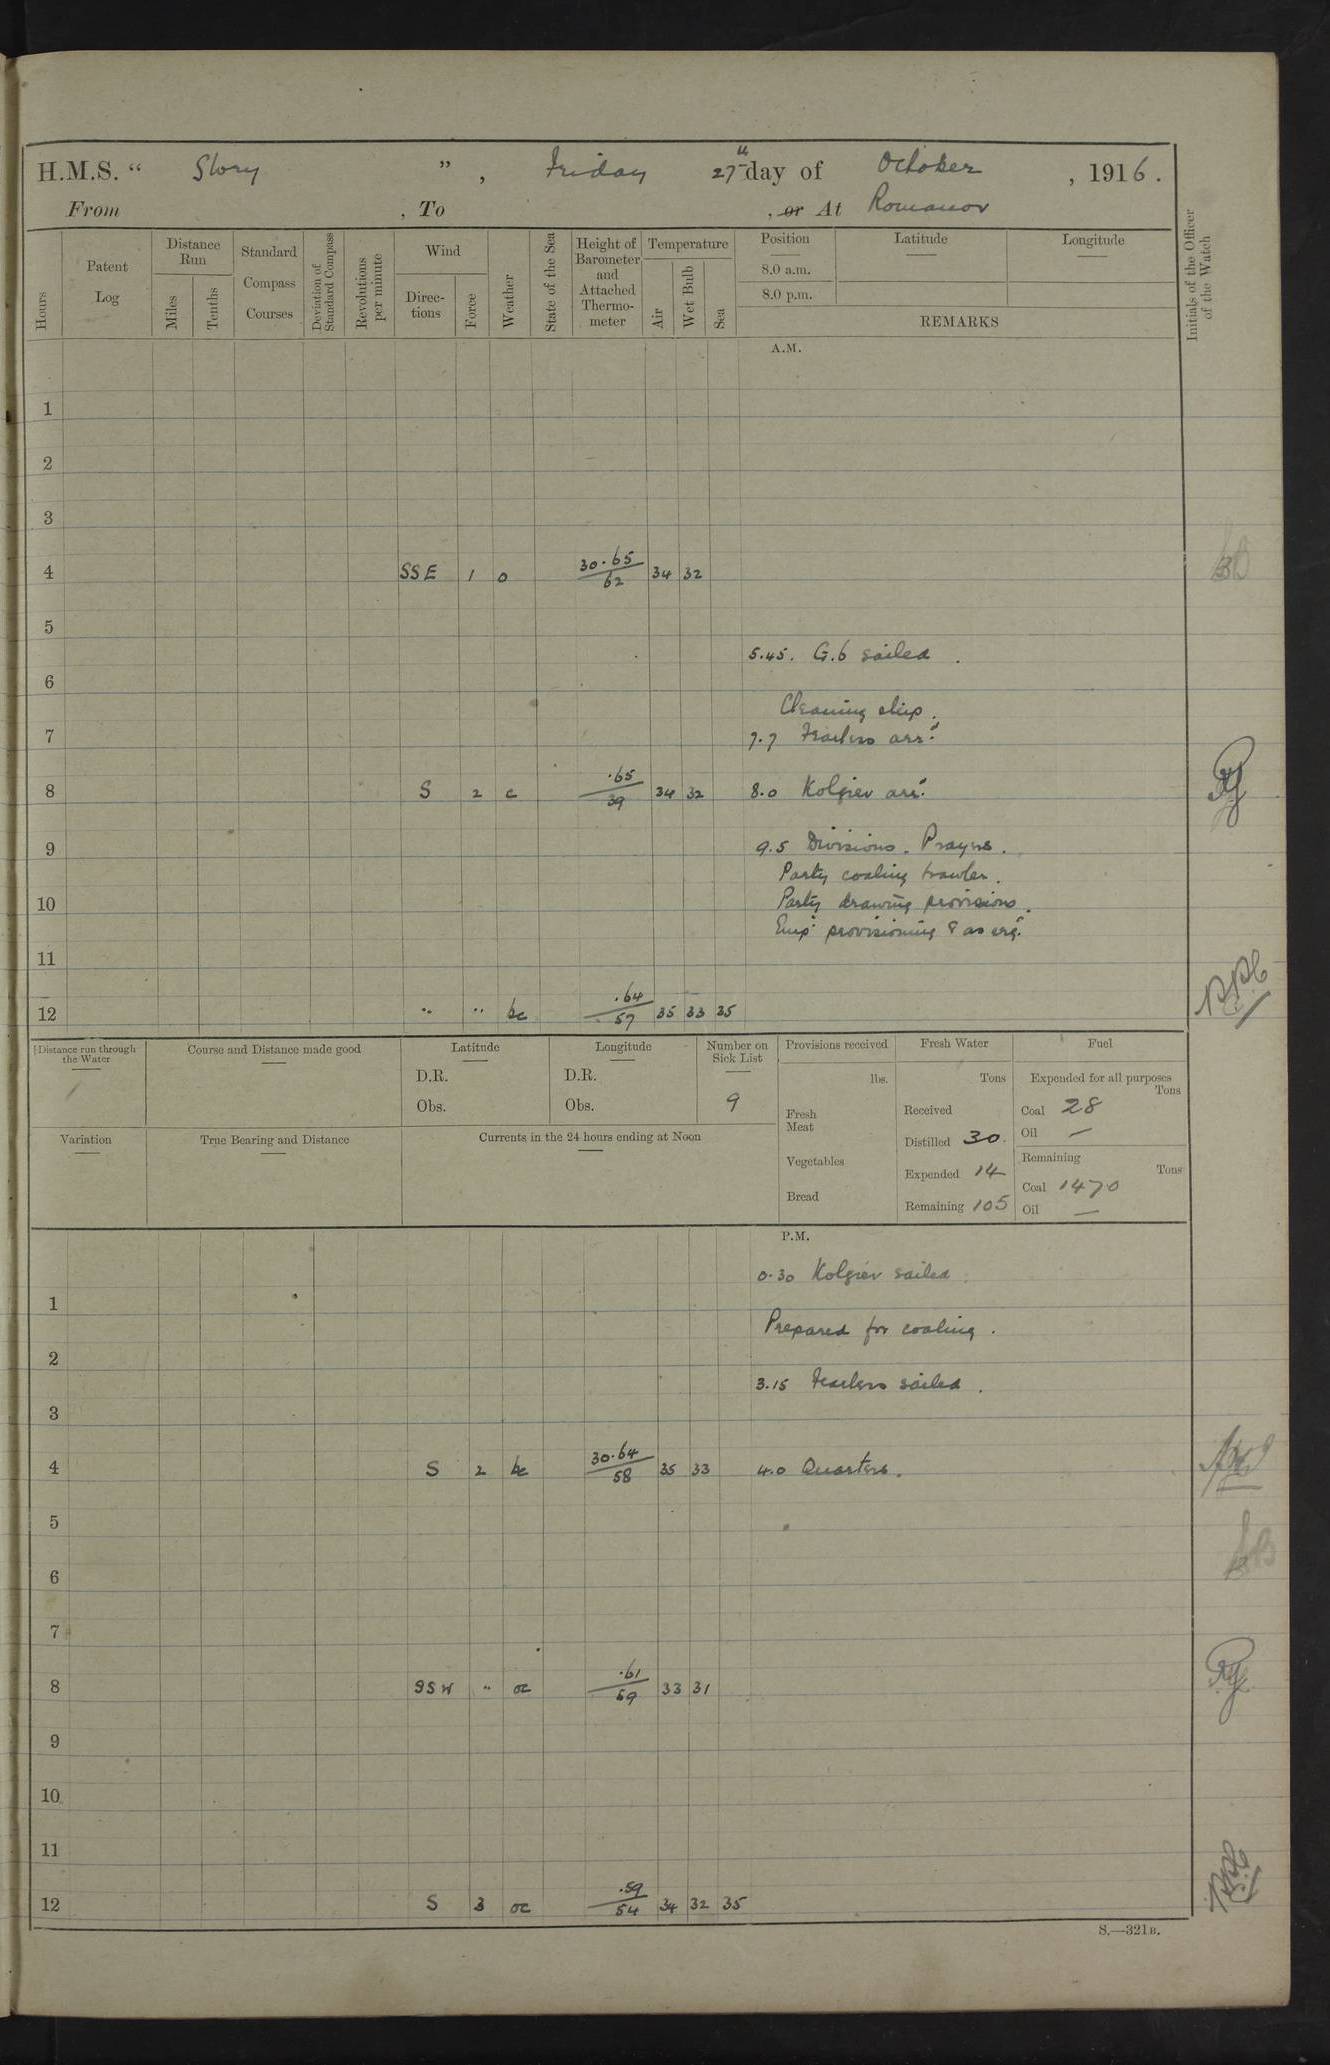 H.M.S. “ Glory ” , Friday 27th day of October , 1916 .
From , To , or At Romanov
Hours
Patent Log
Distance Run
Miles
Tenths
Standard Compass Courses
Deviation of Standard Compass
Revolutions per minute
Wind
Directions
Force
Weather
State of the Sea
Height of Barometer and Attached Thermometer
Temperature
Air
Wet Bulb
Sea
Position
8.0 a.m.
8.0 p.m.
Latitude
Longitude
REMARKS
Initials of the Officer of the Watch
A.M.
1
2
3
4 SSE 1 o 30.65 62 34 32
5
5.45. G.6 sailed .
6
Cleaning ship.
7 7.7 Fearless arrd.
8 S 2 c .65 39 34 32 8.0 Kolgiev arrd.
9 9.5 Divisions. Prayers.
Party coaling trawler.
10 Party drawing provisions.
Empd. provisioning & as reqd.
11
12 " " bc .64 57 35 33 35
Distance run through the Water
Course and Distance made good
Latitude
D.R.
Obs.
Longitude
D.R.
Obs.
Number on Sick List
9
Provisions received
lbs.
Fresh Meat
Vegetables
Bread
Fresh Water
Tons
Received
Distilled 30
Expended 14
Remaining 105
Fuel
Expended for all purposes
Tons
Coal 28
Oil —
Remaining
Tons
Coal 1470
Oil —
Variation
True Bearing and Distance
Currents in the 24 hours ending at Noon
P.M.
0.30 Kolgiev sailed.
1
Prepared for coaling.
2
3.15 Fearless sailed.
3
4 S 2 bc 30.64 58 35 33 4.0 Quarters.
5
6
7
8 SSW " oc .61 59 33 31
9
10
11
12 S 3 oc .59 54 34 32 35
S.—321B.